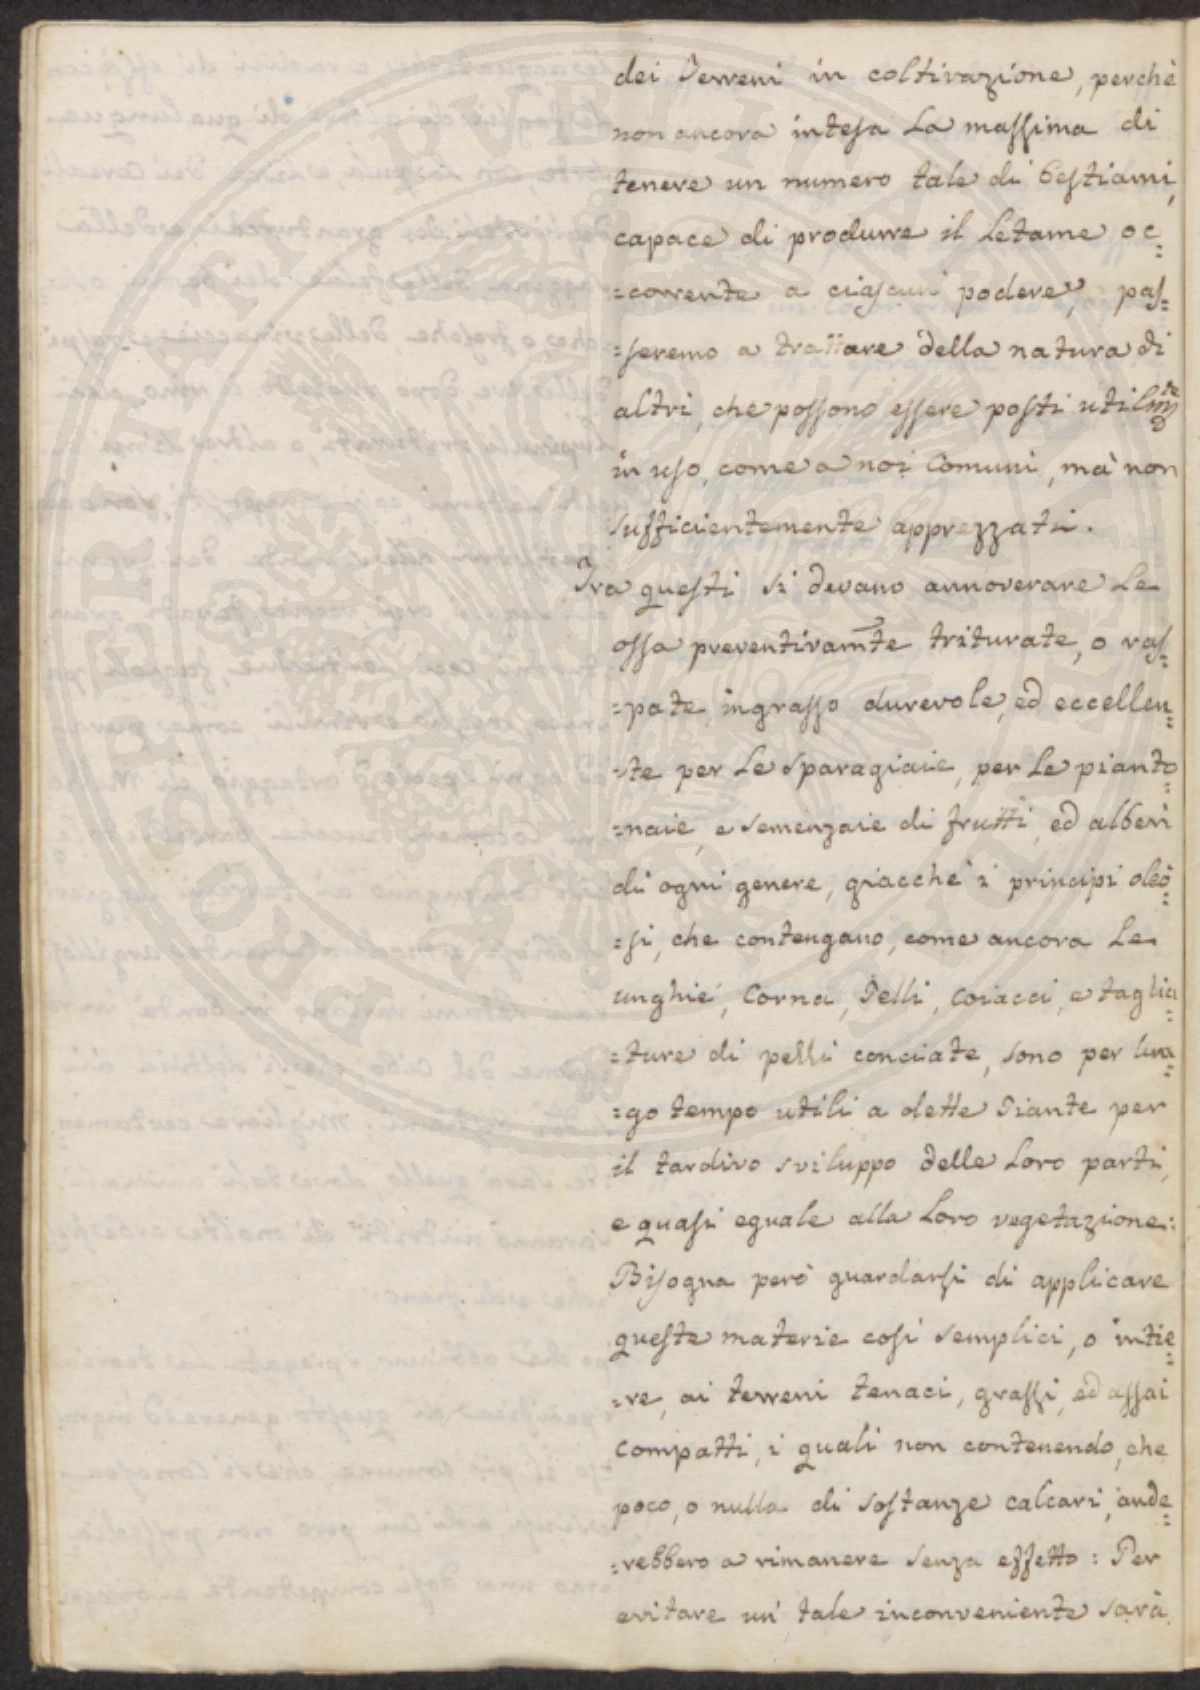 dei Terreni in coltivazione, perchè
non ancora intesa la massima di
tenere un numero tale di bestiami,
capace di produrre il letame oc=
=corrente a ciascun podere, pas=
=seremo a trattare della natura di
altri, che possono essere posti utilmte
in uso, come a noi Comuni, mà non
sufficientemente apprezzati.
Tra questi si devano annoverare le
ossa preventivamte triturate, o ras=
=pate ingrasso durevole, ed eccellen=
=te per le sparagiaie, per le pianto=
=naie, e semenzaie di frutti, ed alberi
di ogni genere, giacchè i principi oleo=
=si, che contengano, come ancora le
unghie, Corna, Pelli, coiacci, e taglia=
=ture di pelli conciate, sono per lun=
=go tempo utili a dette Piante per
il tardivo sviluppo delle loro parti,
e quasi eguale alla loro vegetazione:
Bisogna però guardarsi di applicare
queste materie così semplici, o intie=
=re, ai terreni tenaci, grassi, ed assai
compatti, i quali non contenendo, che
poco, o nulla di sostanze calcari, ande=
=rebbero a rimanere senza effetto: Per
evitare un tale inconveniente sarà